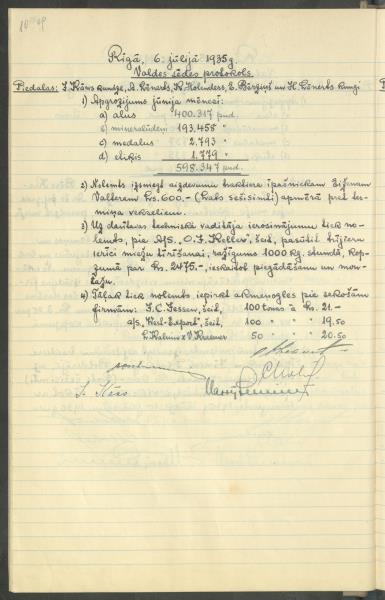 Rīgā, 6. jūlijā 1935 g.
Valdes sēdes protokols.
Piedalas: I. Kāns kundze, A. Lēnerts, R. Holanders, E. Bērziņš un H. Lēnerts kungi
1) Apgrozījums jūnija mēnesī:
a) alus 400.317 pud.
b) mineralūdeņi 193.458 "
c) medalus 2.793 "
d) eliķis 1.779 "
598.347 pud.
2) Nolemts izsniegt aizdevumu traktiera īpašniekam Eiženam
Valteram Ls. 600.- (Lats sešisimti) apmērā pret ter-
miņa vekseļiem.
3) Uz darītavas techniskā vadītāja ierosinājumu tiek no-
lemts, pie A/S. "O. F. Keller", šeit, pasūtīt trijieru
ierīci miežu tīrīšanai, ražīgums 1000 kg. stundā, kop-
sumā par Ls. 2475.-, ieskaitot piegādāšanu un mon-
tāžu.
4) Tāļāk tiek nolemts iepirkt akmeņogles pie sekošām
firmām: F. C. Jessen, šeit, 100 tonas à Ls. 21.-
a/s. "West-Export", šeit, 100 " " " 19.50
" " 50 " " " 20.50